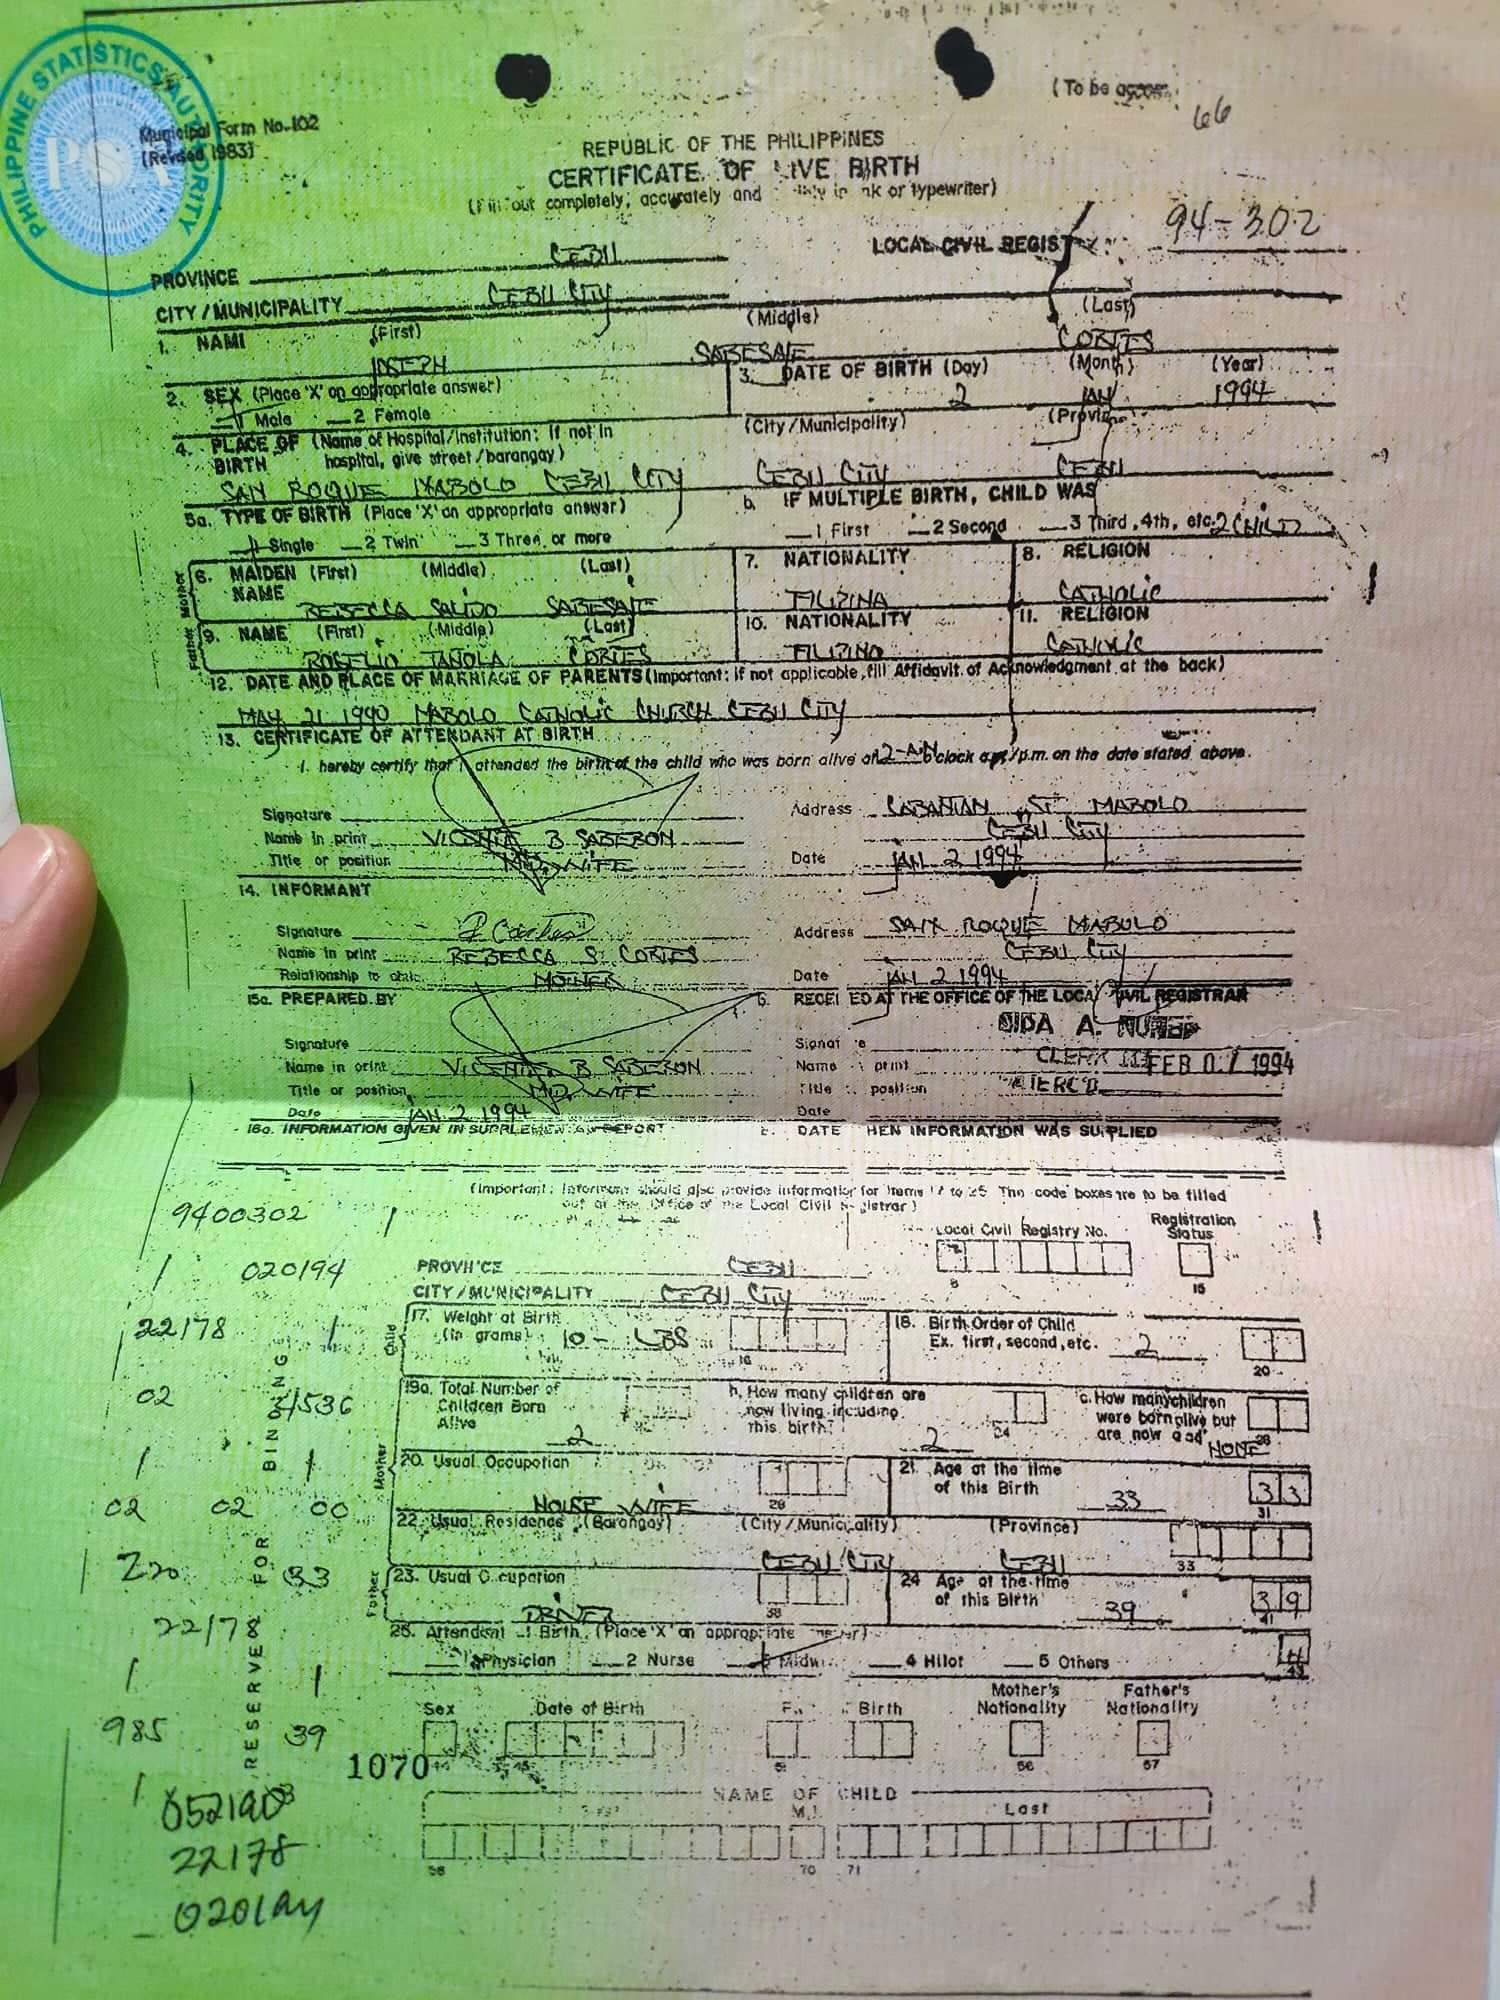 PHILIPPINE STATISTICS AUTHORITY
PSA
(To be
66
Municipal Form No. 102
(Revised 1983)
REPUBLIC OF THE PHILIPPINES
CERTIFICATE OF LIVE BIRTH
(Fill out completely, accurately and in ink or typewriter)
LOCAL CIVIL REGIST 94-302
PROVINCE CEBU
CITY/MUNICIPALITY CEBU CITY
1. NAME (First) (Middle) (Last)
JOSEPH SABESAJE CORTES
2. SEX (Place 'X' on appropriate answer) 3. DATE OF BIRTH (Day) (Month) (Year)
1 Male 2 Female 2 JAN 1994
4. PLACE OF BIRTH (Name of Hospital/Institution; if not in hospital, give street/barangay) (City/Municipality) (Province)
SAN ROQUE MABOLO CEBU CITY CEBU CITY CEBU
5a. TYPE OF BIRTH (Place 'X' on appropriate answer) b. IF MULTIPLE BIRTH, CHILD WAS
1 Single 2 Twin 3 Three or more 1 First 2 Second 3 Third, 4th, etc. 2 CHILD
Mother
6. MAIDEN NAME (First) (Middle) (Last) 7. NATIONALITY 8. RELIGION
REBECCA SALIDO SABESAJE FILIPINA CATHOLIC
Father
9. NAME (First) (Middle) (Last) 10. NATIONALITY 11. RELIGION
ROGELIO TANOLA CORTES FILIPINO CATHOLIC
12. DATE AND PLACE OF MARRIAGE OF PARENTS (Important: if not applicable, fill Affidavit of Acknowledgment at the back)
MAY 21 1990 MABOLO CATHOLIC CHURCH CEBU CITY
13. CERTIFICATE OF ATTENDANT AT BIRTH
I hereby certify that I attended the birth of the child who was born alive at 2-AM o'clock a.m./p.m. on the date stated above.
Signature Address CABANTAN ST MABOLO
Name in print VICENTA B SABERON CEBU CITY
Title or position MIDWIFE Date JAN 2 1994
14. INFORMANT
Signature R Cortes Address SAN ROQUE MABOLO
Name in print REBECCA S. CORTES CEBU CITY
Relationship to child MOTHER Date JAN 2 1994
15a. PREPARED BY b. RECEIVED AT THE OFFICE OF THE LOCAL CIVIL REGISTRAR
Signature Signature
Name in print VICENTA B SABERON Name in print CLERK III FEB 07 1994
Title or position MIDWIFE Title position
Date JAN 2 1994 Date
16a. INFORMATION GIVEN IN SUPPLEMENTAL REPORT b. DATE WHEN INFORMATION WAS SUPPLIED
(Important: Informant should also provide information for items 17 to 25. The code boxes are to be filled
out at the Office of the Local Civil Registrar)
9400302
Local Civil Registry No. Registration Status
1 020194
PROVINCE CEBU
CITY/MUNICIPALITY CEBU CITY
22178 1
Child
17. Weight at Birth (in grams) 10 - LBS 18. Birth Order of Child Ex. first, second, etc. 2
02 31536
Mother
19a. Total Number of Children Born Alive 2 b. How many children are now living including this birth? 2 c. How many children were born alive but are now dead? NONE
1 1
20. Usual Occupation HOUSE WIFE 21. Age at the time of this Birth 33 33
02 02 00
22. Usual Residence (Barangay) (City/Municipality) (Province)
CEBU CITY CEBU
220 33
Father
23. Usual Occupation DRIVER 24. Age at the time of this Birth 39 39
22178
25. Attendant at Birth (Place 'X' on appropriate answer)
1 Physician 2 Nurse 3 Midwife 4 Hilot 5 Others
1 1
Sex Date of Birth Birth Mother's Nationality Father's Nationality
985 39
RESERVE FOR BINDING
1070
1
NAME OF CHILD
First M.I. Last
22178